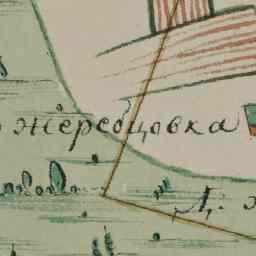 жеребцовка
Д.